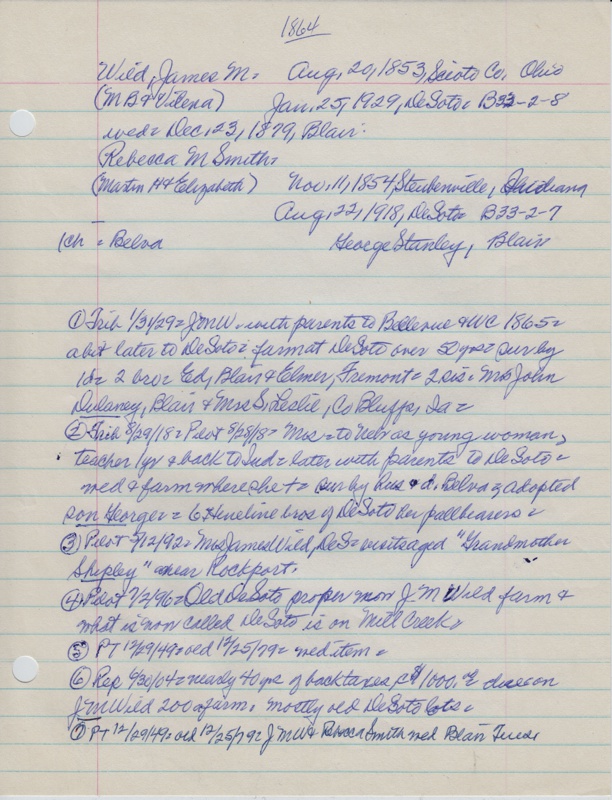 1864
Wild, James M. = Aug. 20, 1853, Scioto Co. Ohio
(MB & Vilena) Jan. 25, 1929, DeSoto = B33-2-8
wed = Dec. 23, 1879, Blair.
Rebecca M Smith =
(Martin H & Elizabeth) Nov. 11, 1854 Steubenville, Indiana
Aug. 22, 1918, DeSoto = B33-2-7
1ch = Belva George Stanley, Blair
① Trib 1/31/29 = JMW. with parents to Bellevue & WC 1865 =
a bit later to DeSoto = farm at DeSoto over 50 yrs = sur by
1d = 2 bro = Ed, Blair & Elmer, Fremont = 2 sis = Mrs John
Dulaney, Blair & Mrs S. Leslie, Co Bluffs, Ia =
② Trib 8/29/18 = Pilot 8/28/18 = Mrs = to Neb as young woman,
teacher 1yr & back to Ind = later with parents to DeSoto =
wed & farm where she + = sur by hus & d. Belva & adopted
son George = 6 Heneline bros of DeSoto her pallbearers =
③ Pilot 5/12/92 = Mrs James Wild, DeS = visits aged "Grandmother
Shipley" near Rockport.
④ Pilot 7/2/96 = Old DeSoto proper now J M Wild farm &
what is now called DeSoto is on Mill Creek =
⑤ PT 12/29/49 = old 12/25/79 = wed item =
⑥ Rep 6/30/04 = nearly 40 yrs of back taxes $1000. due on
J M Wild 200 a farm. mostly old DeSoto lots =
⑦ PT 12/29/49 = old 12/25/79 = J M W & Rebecca Smith wed Blair Tues.